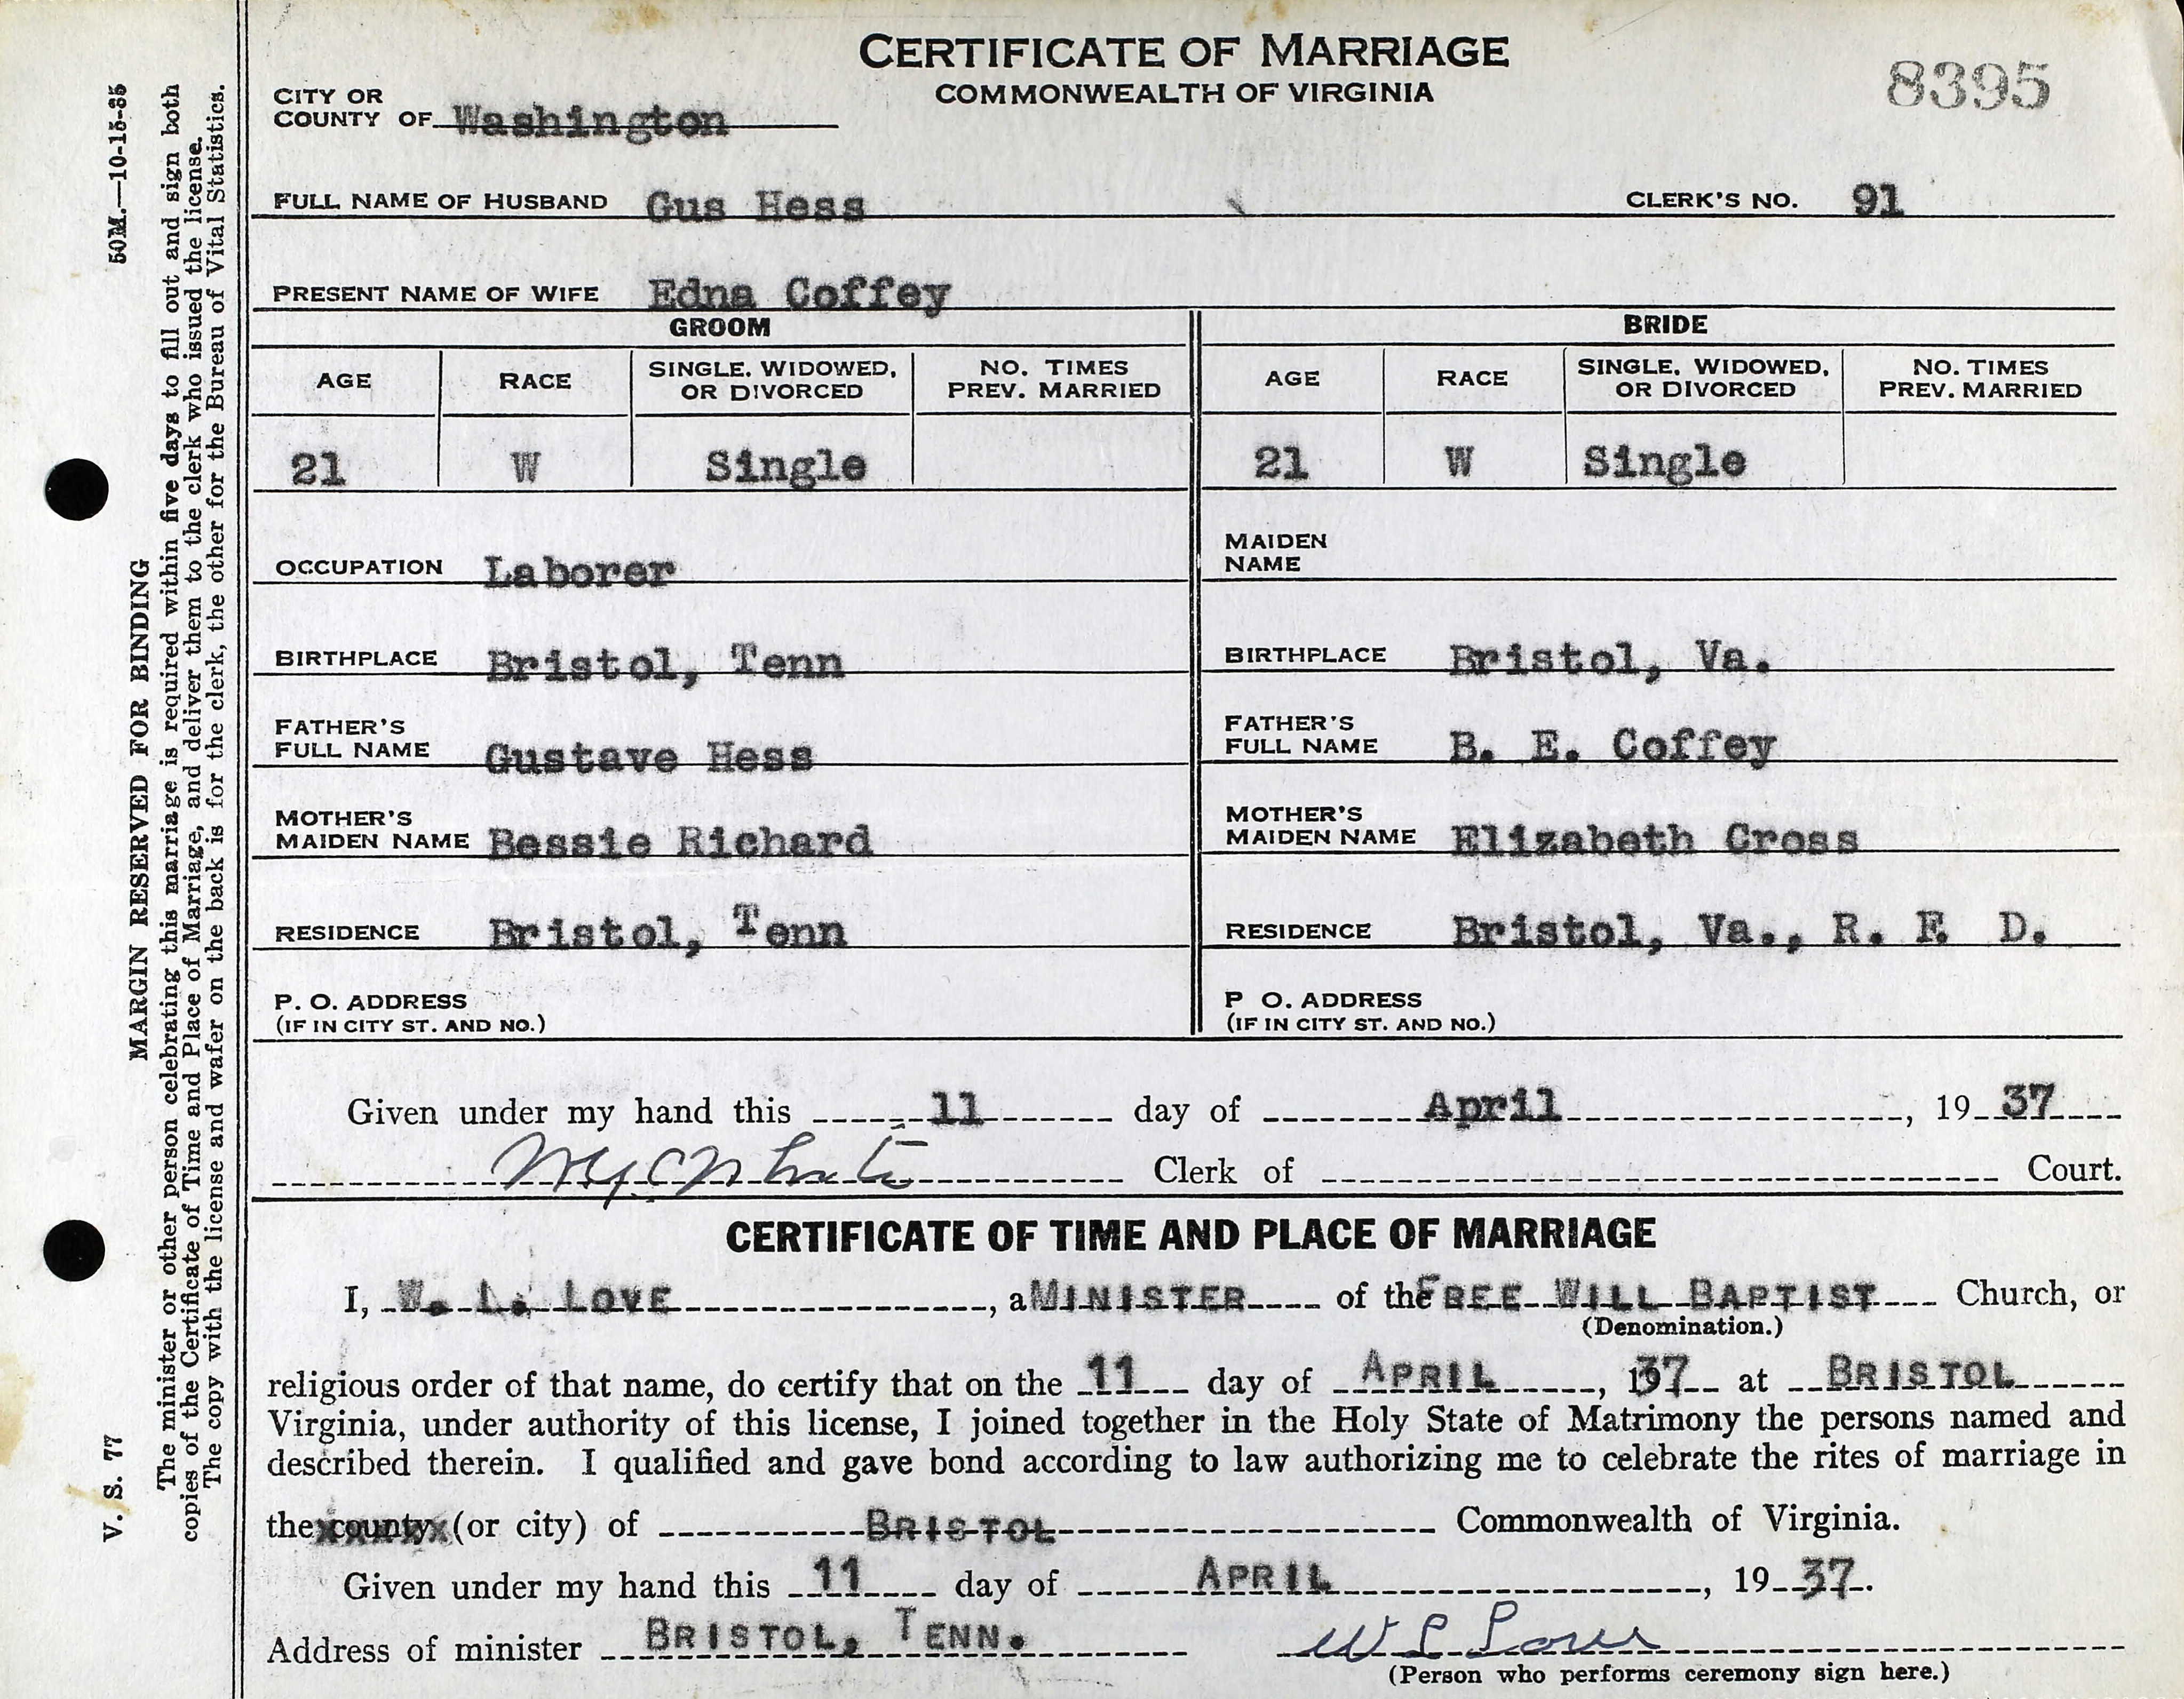 CERTIFICATE OF MARRIAGE
COMMONWEALTH OF VIRGINIA
8395
CITY OR
COUNTY OF Washington
FULL NAME OF HUSBAND Gus Hess CLERK'S NO. 91
PRESENT NAME OF WIFE Edna Coffey
GROOM BRIDE
AGE RACE SINGLE, WIDOWED, OR DIVORCED NO. TIMES PREV. MARRIED AGE RACE SINGLE, WIDOWED, OR DIVORCED NO. TIMES PREV. MARRIED
21 W Single 21 W Single
OCCUPATION Laborer MAIDEN NAME
BIRTHPLACE Bristol, Tenn BIRTHPLACE Bristol, Va.
FATHER'S FULL NAME Gustave Hess FATHER'S FULL NAME B. E. Coffey
MOTHER'S MAIDEN NAME Bessie Richard MOTHER'S MAIDEN NAME Elizabeth Cross
RESIDENCE Bristol, Tenn RESIDENCE Bristol, Va., R. F. D.
P. O. ADDRESS (IF IN CITY ST. AND NO.) P O. ADDRESS (IF IN CITY ST. AND NO.)
Given under my hand this 11 day of April, 19 37
Clerk of Court.
CERTIFICATE OF TIME AND PLACE OF MARRIAGE
I, W. L. LOVE, a MINISTER of the FREE WILL BAPTIST Church, or
(Denomination.)
religious order of that name, do certify that on the 11 day of APRIL, 1937 at BRISTOL
Virginia, under authority of this license, I joined together in the Holy State of Matrimony the persons named and
described therein. I qualified and gave bond according to law authorizing me to celebrate the rites of marriage in
the county (or city) of BRISTOL Commonwealth of Virginia.
Given under my hand this 11 day of APRIL, 19 37.
Address of minister BRISTOL, TENN. W L Love
(Person who performs ceremony sign here.)
V. S. 77 MARGIN RESERVED FOR BINDING 50M.—10-15-35
The minister or other person celebrating this marriage is required within five days to fill out and sign both
copies of the Certificate of Time and Place of Marriage, and deliver them to the clerk who issued the license.
The copy with the license and wafer on the back is for the clerk, the other for the Bureau of Vital Statistics.